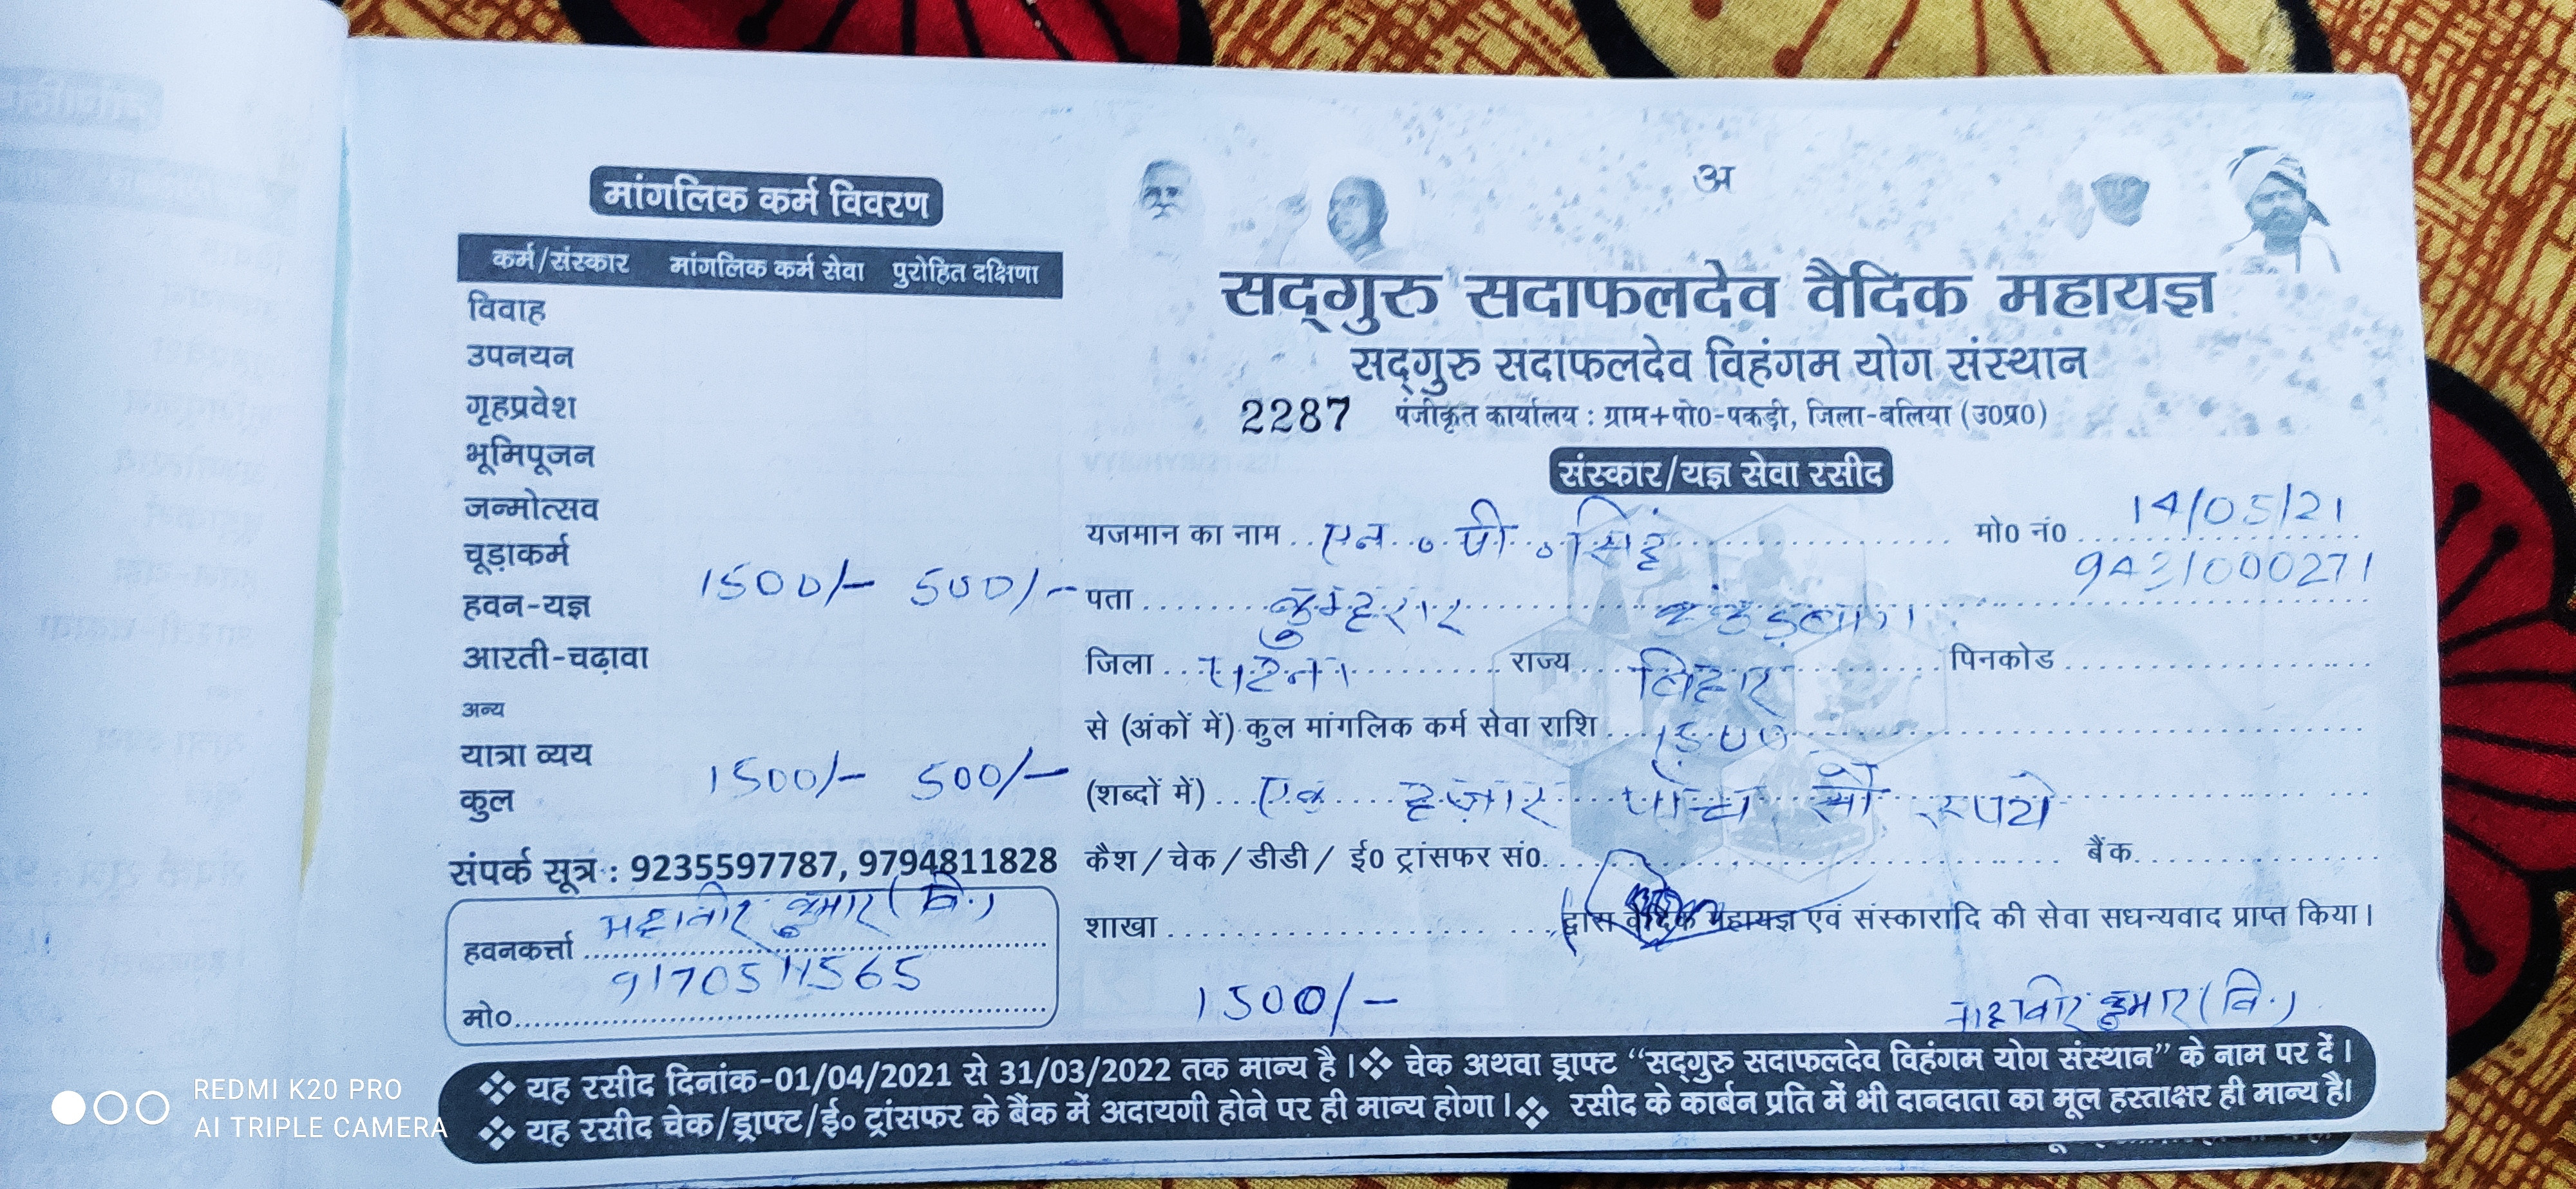 मांगलिक कर्म विवरण
कर्म/संस्कार मांगलिक कर्म सेवा पुरोहित दक्षिणा
विवाह
उपनयन
गृहप्रवेश
भूमिपूजन
जन्मोत्सव
चूड़ाकर्म
हवन-यज्ञ 1500/- 500/-
आरती-चढ़ावा
अन्य
यात्रा व्यय
कुल 1500/- 500/-
संपर्क सूत्र : 9235597787, 9794811828
हवनकर्त्ता महावीर कुमार (वि.)
मो०. 9170511565
अ
सद्गुरु सदाफलदेव वैदिक महायज्ञ
सद्गुरु सदाफलदेव विहंगम योग संस्थान
2287 पंजीकृत कार्यालय : ग्राम+पो0-पकड़ी, जिला-बलिया (उ0प्र0)
संस्कार/यज्ञ सेवा रसीद
14/05/21
यजमान का नाम एन॰ पी॰ सिंह मो0 नं0 9431000271
पता कुम्हरार
जिला पटना राज्य बिहार पिनकोड
से (अंकों में) कुल मांगलिक कर्म सेवा राशि 1500
(शब्दों में) एक हज़ार पाँच सौ रुपये
कैश / चेक / डीडी / ई0 ट्रांसफर सं0. बैंक
शाखा द्वारा वैदिक महायज्ञ एवं संस्कारादि की सेवा सधन्यवाद प्राप्त किया।
1500/- महावीर कुमार (वि.)
❖ यह रसीद दिनांक-01/04/2021 से 31/03/2022 तक मान्य है।❖ चेक अथवा ड्राफ्ट “सद्गुरु सदाफलदेव विहंगम योग संस्थान” के नाम पर दें।
❖ यह रसीद चेक/ड्राफ्ट/ई० ट्रांसफर के बैंक में अदायगी होने पर ही मान्य होगा।❖ रसीद के कार्बन प्रति में भी दानदाता का मूल हस्ताक्षर ही मान्य है।
REDMI K20 PRO
AI TRIPLE CAMERA